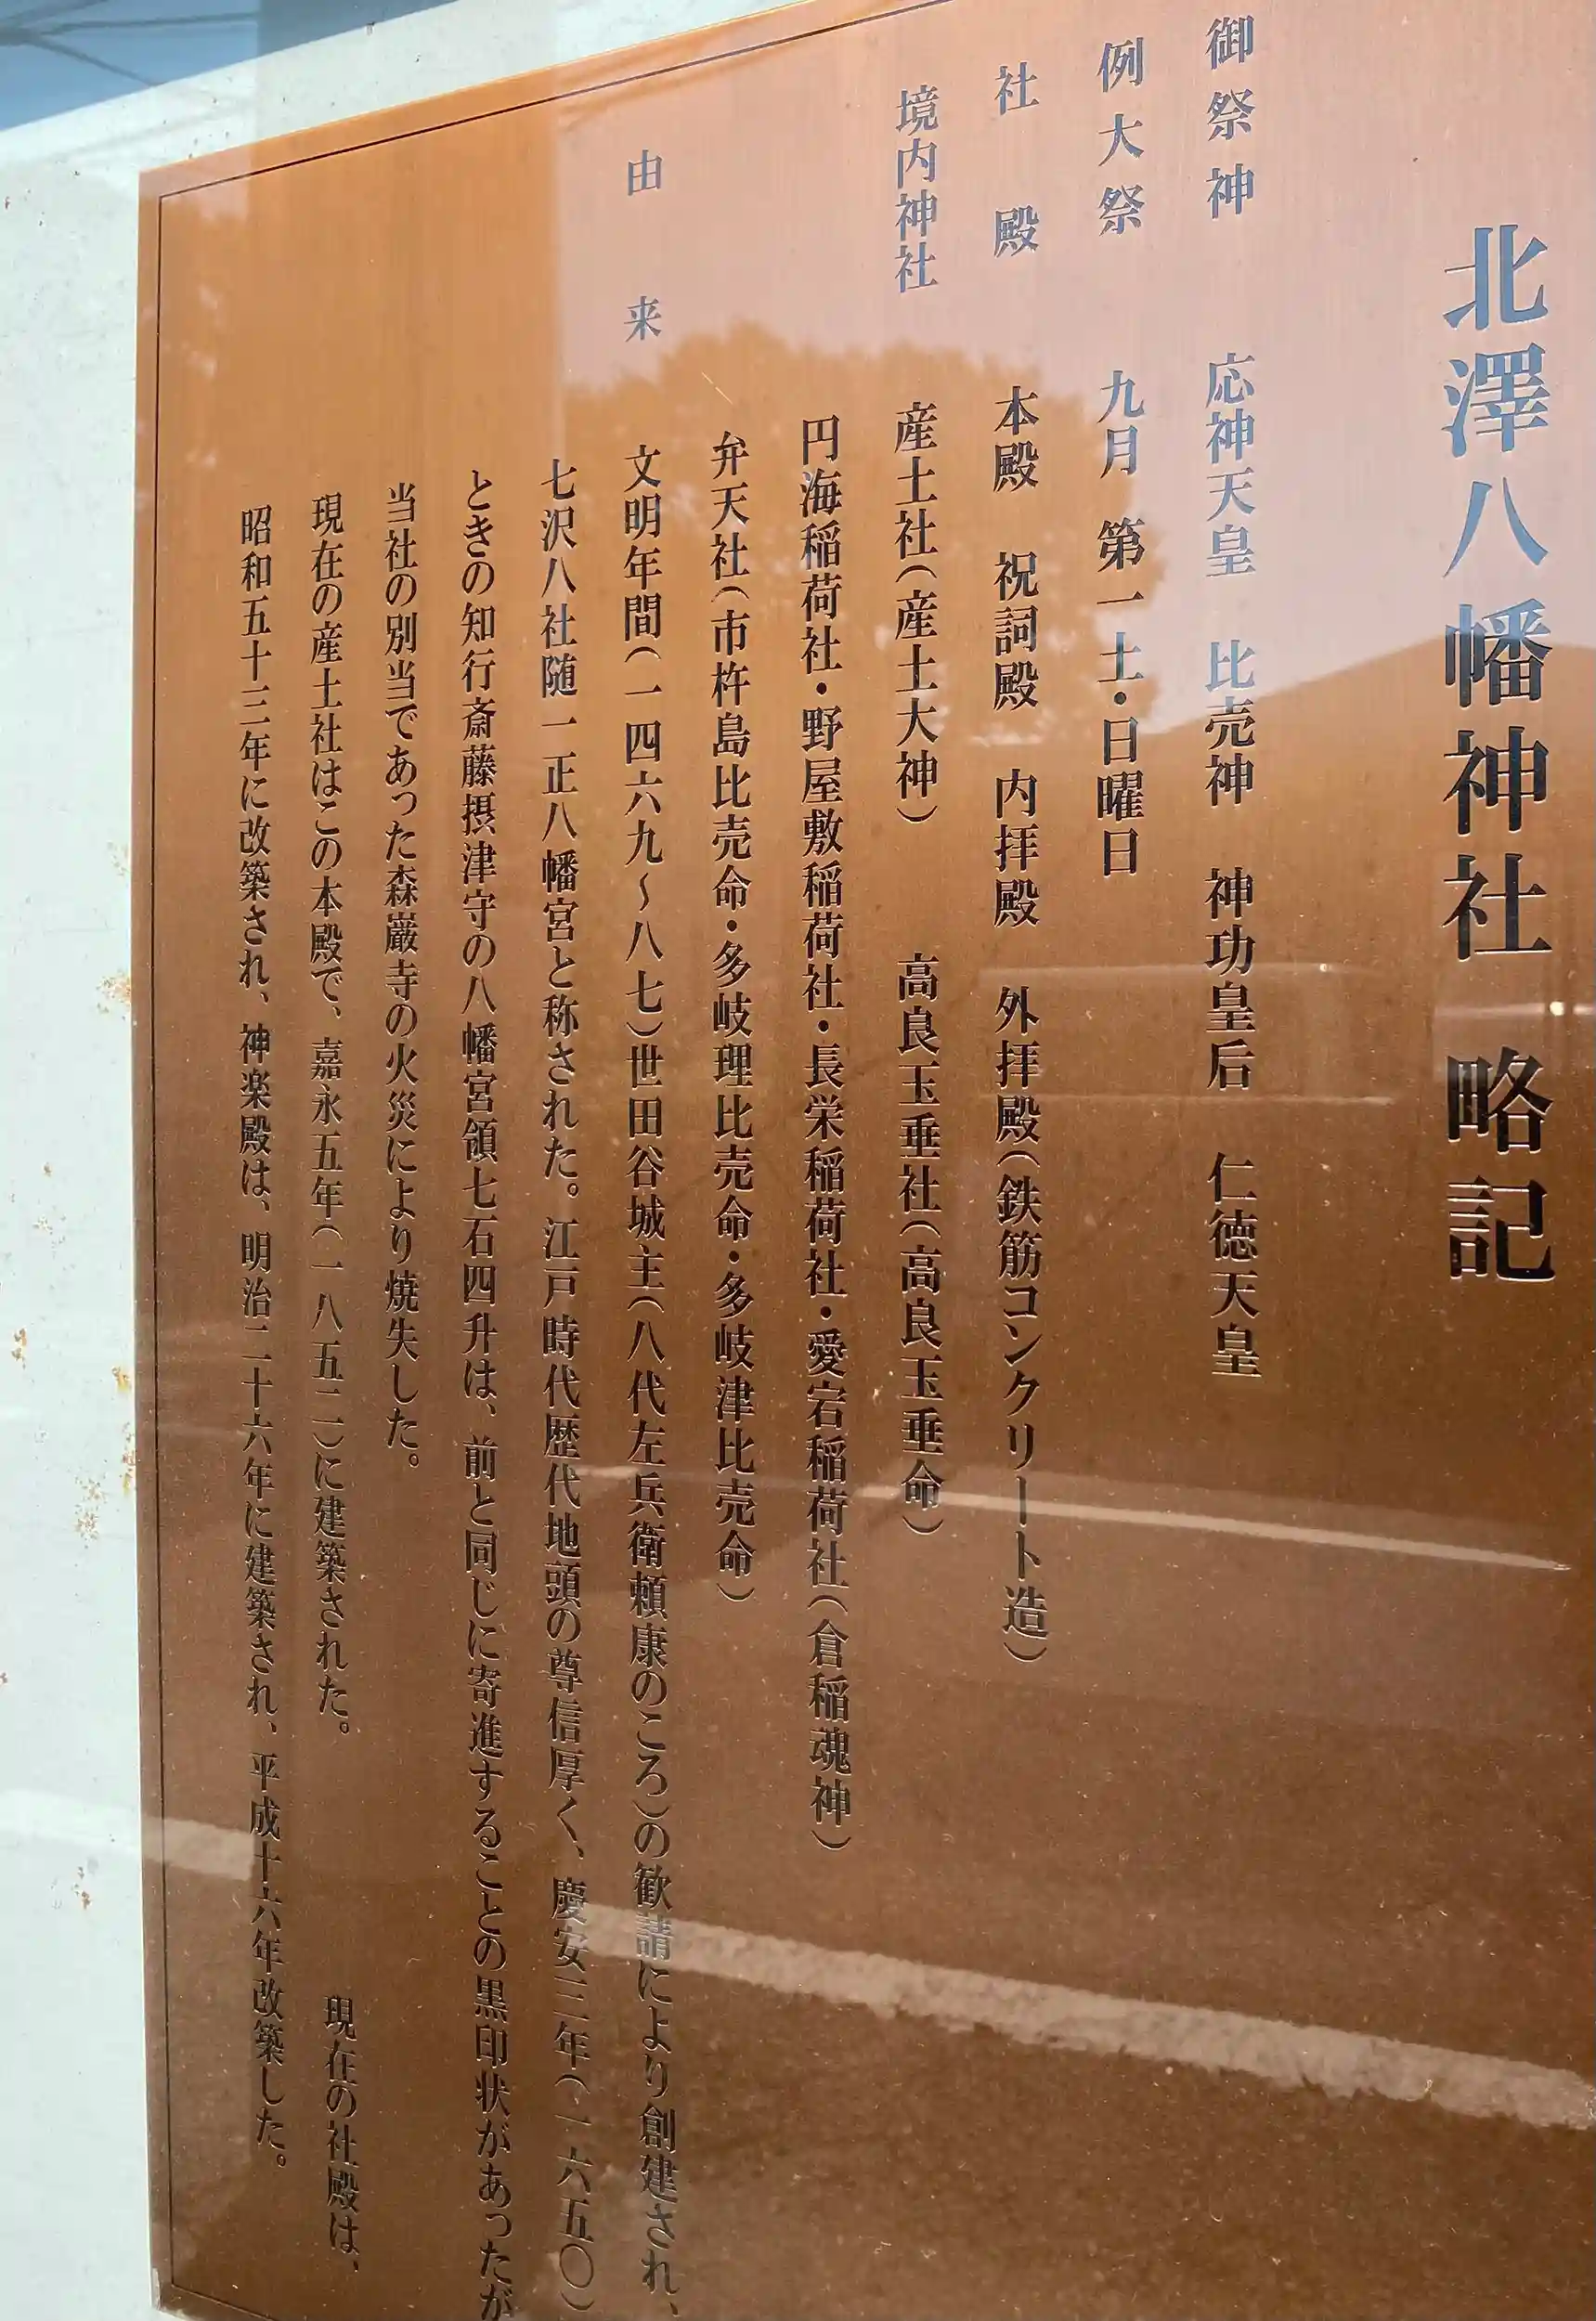 北澤八幡神社 略記
御祭神 応神天皇 比売神 神功皇后 仁徳天皇
例大祭 九月 第一土・日曜日
社殿 本殿 祝詞殿 内拝殿 外拝殿(鉄筋コンクリート造)
境内神社 産土社(産土大神) 高良玉垂社(高良玉垂命)
円海稲荷社・野屋敷稲荷社・長栄稲荷社・愛宕稲荷社(倉稲魂神)
弁天社(市杵島比売命・多岐理比売命・多岐津比売命)
由来 文明年間(一四六九〜八七)世田谷城主(八代左兵衛頼康のころ)の歓請により創建され、
七沢八社随一正八幡宮と称された。江戸時代歴代地頭の尊信厚く、慶安三年(一六五〇)
ときの知行斎藤摂津守の八幡宮領七石四升は、前と同じに寄進することの黒印状があったが
当社の別当であった森巌寺の火災により焼失した。
現在の産土社はこの本殿で、嘉永五年(一八五二)に建築された。 現在の社殿は、
昭和五十三年に改築され、神楽殿は、明治二十六年に建築され、平成十六年改築した。